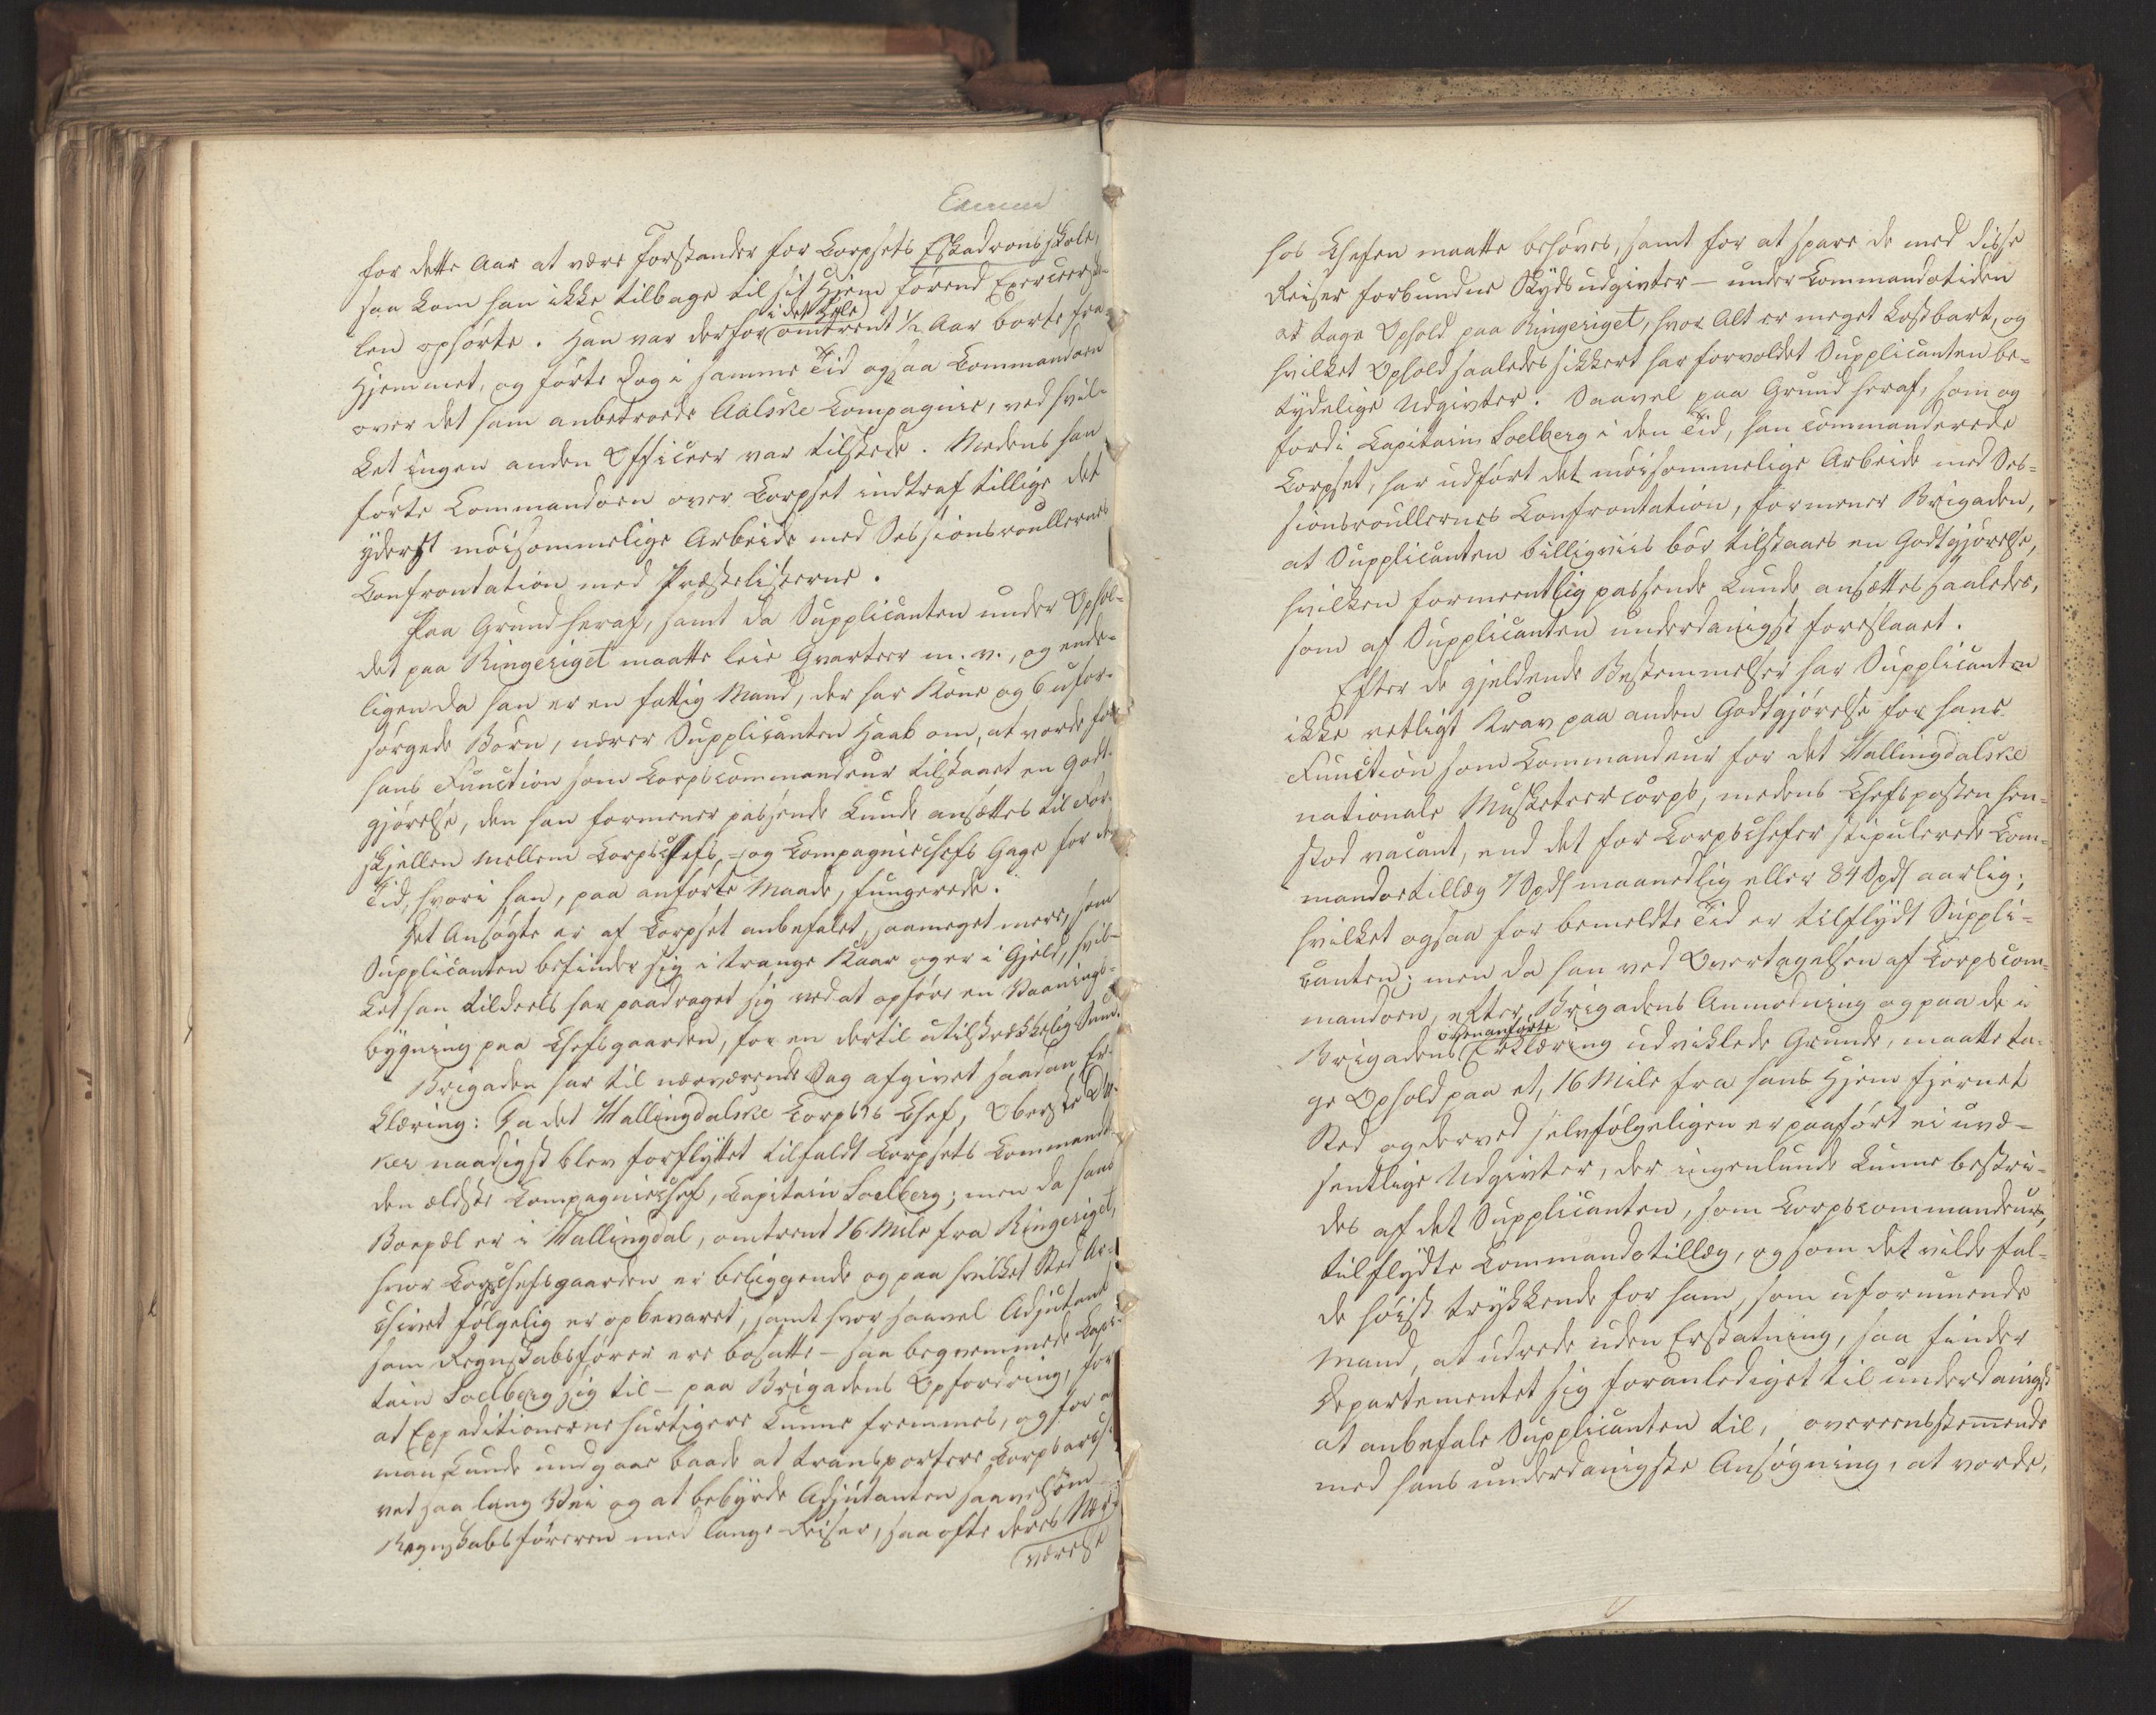 for dette Aar at være Forstander for Corpsets Eskadronsskole,
saa kom han ikke tilbage til sit Hjem førend Exerceersko-
len ophørte. Han var derfor (i det Hele) omtrent 1/2 Aar borte fra
Hjemmet, og førte dog i samme Tid ogsaa Commandoen
over det ham anbetroede Aalske Compagnie, ved hvil-
ket ingen anden Officeer var tilstede. Medens han
førte Commandoen over Corpset indtraf tillige det
yderst møisommelige Arbeide med Sessionsroullernes
Confrontation med Præstelisterne.
Paa Grund heraf, samt da Supplicanten under Ophol-
det paa Ringeriget maatte leie Qvarteer m. v., og ende-
ligen da han er en fattig Mand, der har Kone og 6 ufor-
sørgede Børn, nærer Supplicanten Haab om, at vorde for
hans Function som Corpscommandeur tilstaaet en Godt-
gjørelse, den han formener passende kunde ansættes til For-
skjellen mellem Corpschefs- og Compagniechefs Gage for den
Tid, hvori han, paa anførte Maade, fungerede.
Det Ansøgte er af Corpset anbefalet, saameget mere, som
Supplicanten befinder sig i trange Kaar og er i Gjeld, hvil-
ket han tildeels har paadraget sig ved at opføre en Vaanings-
bygning paa Chefsgaarden, for en dertil utilstrækkelig Sum.
Brigaden har til nærværende Sag afgivet saadan Er-
klæring: Da det Hallingdalske Corpses Chef, Oberstl
naadigst blev forflyttet tilfaldt Corpsets Commando
den ældste Compagniechef, Capitain Soelberg; men da hans
Boepæl er i Hallingdal, omtrent 16 Mile fra Ringeriget,
hvor Corpschefsgaarden er beliggende og paa hvilket Sted Ar-
chivet følgelig er opbevaret, samt hvor saavel Adjutant
som Regnskabsfører ere bosatte – saa beqvemmede Capi-
tain Soelberg sig til – paa Brigadens Opfordring, for
at Expeditionerne hurtigere kunne fremmes, og for at
man kunde undgaae baade at transportere Corpsarchi-
vet saa lang Vei og at bebyrde Adjutanten saavelsom
Regnskabsføreren med lange Reiser, saa ofte deres Nær-
værelse
hos Chefen maatte behøves, samt for at spare de med disse
Reiser forbundne Skydsudgivter – under Commandotiden
at tage Ophold paa Ringeriget, hvor Alt er meget kostbart, og
hvilket Ophold saaledes sikkert har forvoldet Supplicanten be-
tydelige Udgivter. Saavel paa Grund heraf, som og
fordi Capitain Soelberg i den Tid, han commanderede
Corpset, har udført det møisommelige Arbeide med Ses-
sionsroullernes Confrontation, formener Brigaden,
at Supplicanten billigviis bør tilstaaes en Godtgjørelse,
hvilken formeentlig passende kunde ansættes saaledes,
som af Supplicanten underdanigst foreslaaet.
Efter de gjeldende Bestemmelser har Supplicanten
ikke retligt Krav paa anden Godtgjørelse for hans
Function som Commandeur for det Hallingdalske
nationale Musketeercorps, medens Chefsposten hen-
stod vacant, end det for Corpschefer stipulerede Com-
mandotillæg 7 Spd maanedlig eller 84 Spd aarlig;
hvilket ogsaa for bemeldte Tid er tilflydt Suppli-
canten; men da han ved Overtagelsen af Corpscom-
mandoen, efter Brigadens Anmodning og paa de i
Brigadens ovenanførte Erklæring udviklede Grunde, maatte ta-
ge Ophold paa et, 16 Mile fra hans Hjem fjernet
Sted og derved selvfølgeligen er paaført ei uvæ-
sentlige Udgivter, der ingenlunde kunne bestri-
des af det Supplicanten, som Corpscommandeur,
tilflydte Commandotillæg, og som det vilde fal-
de høist trykkende for ham, som uformuende
Mand, at udrede uden Erstatning, saa finder
Departementet sig foranlediget til underdanigst
at anbefale Supplicanten til, overeensstemmende
med hans underdanigste Ansøgning, at vorde,